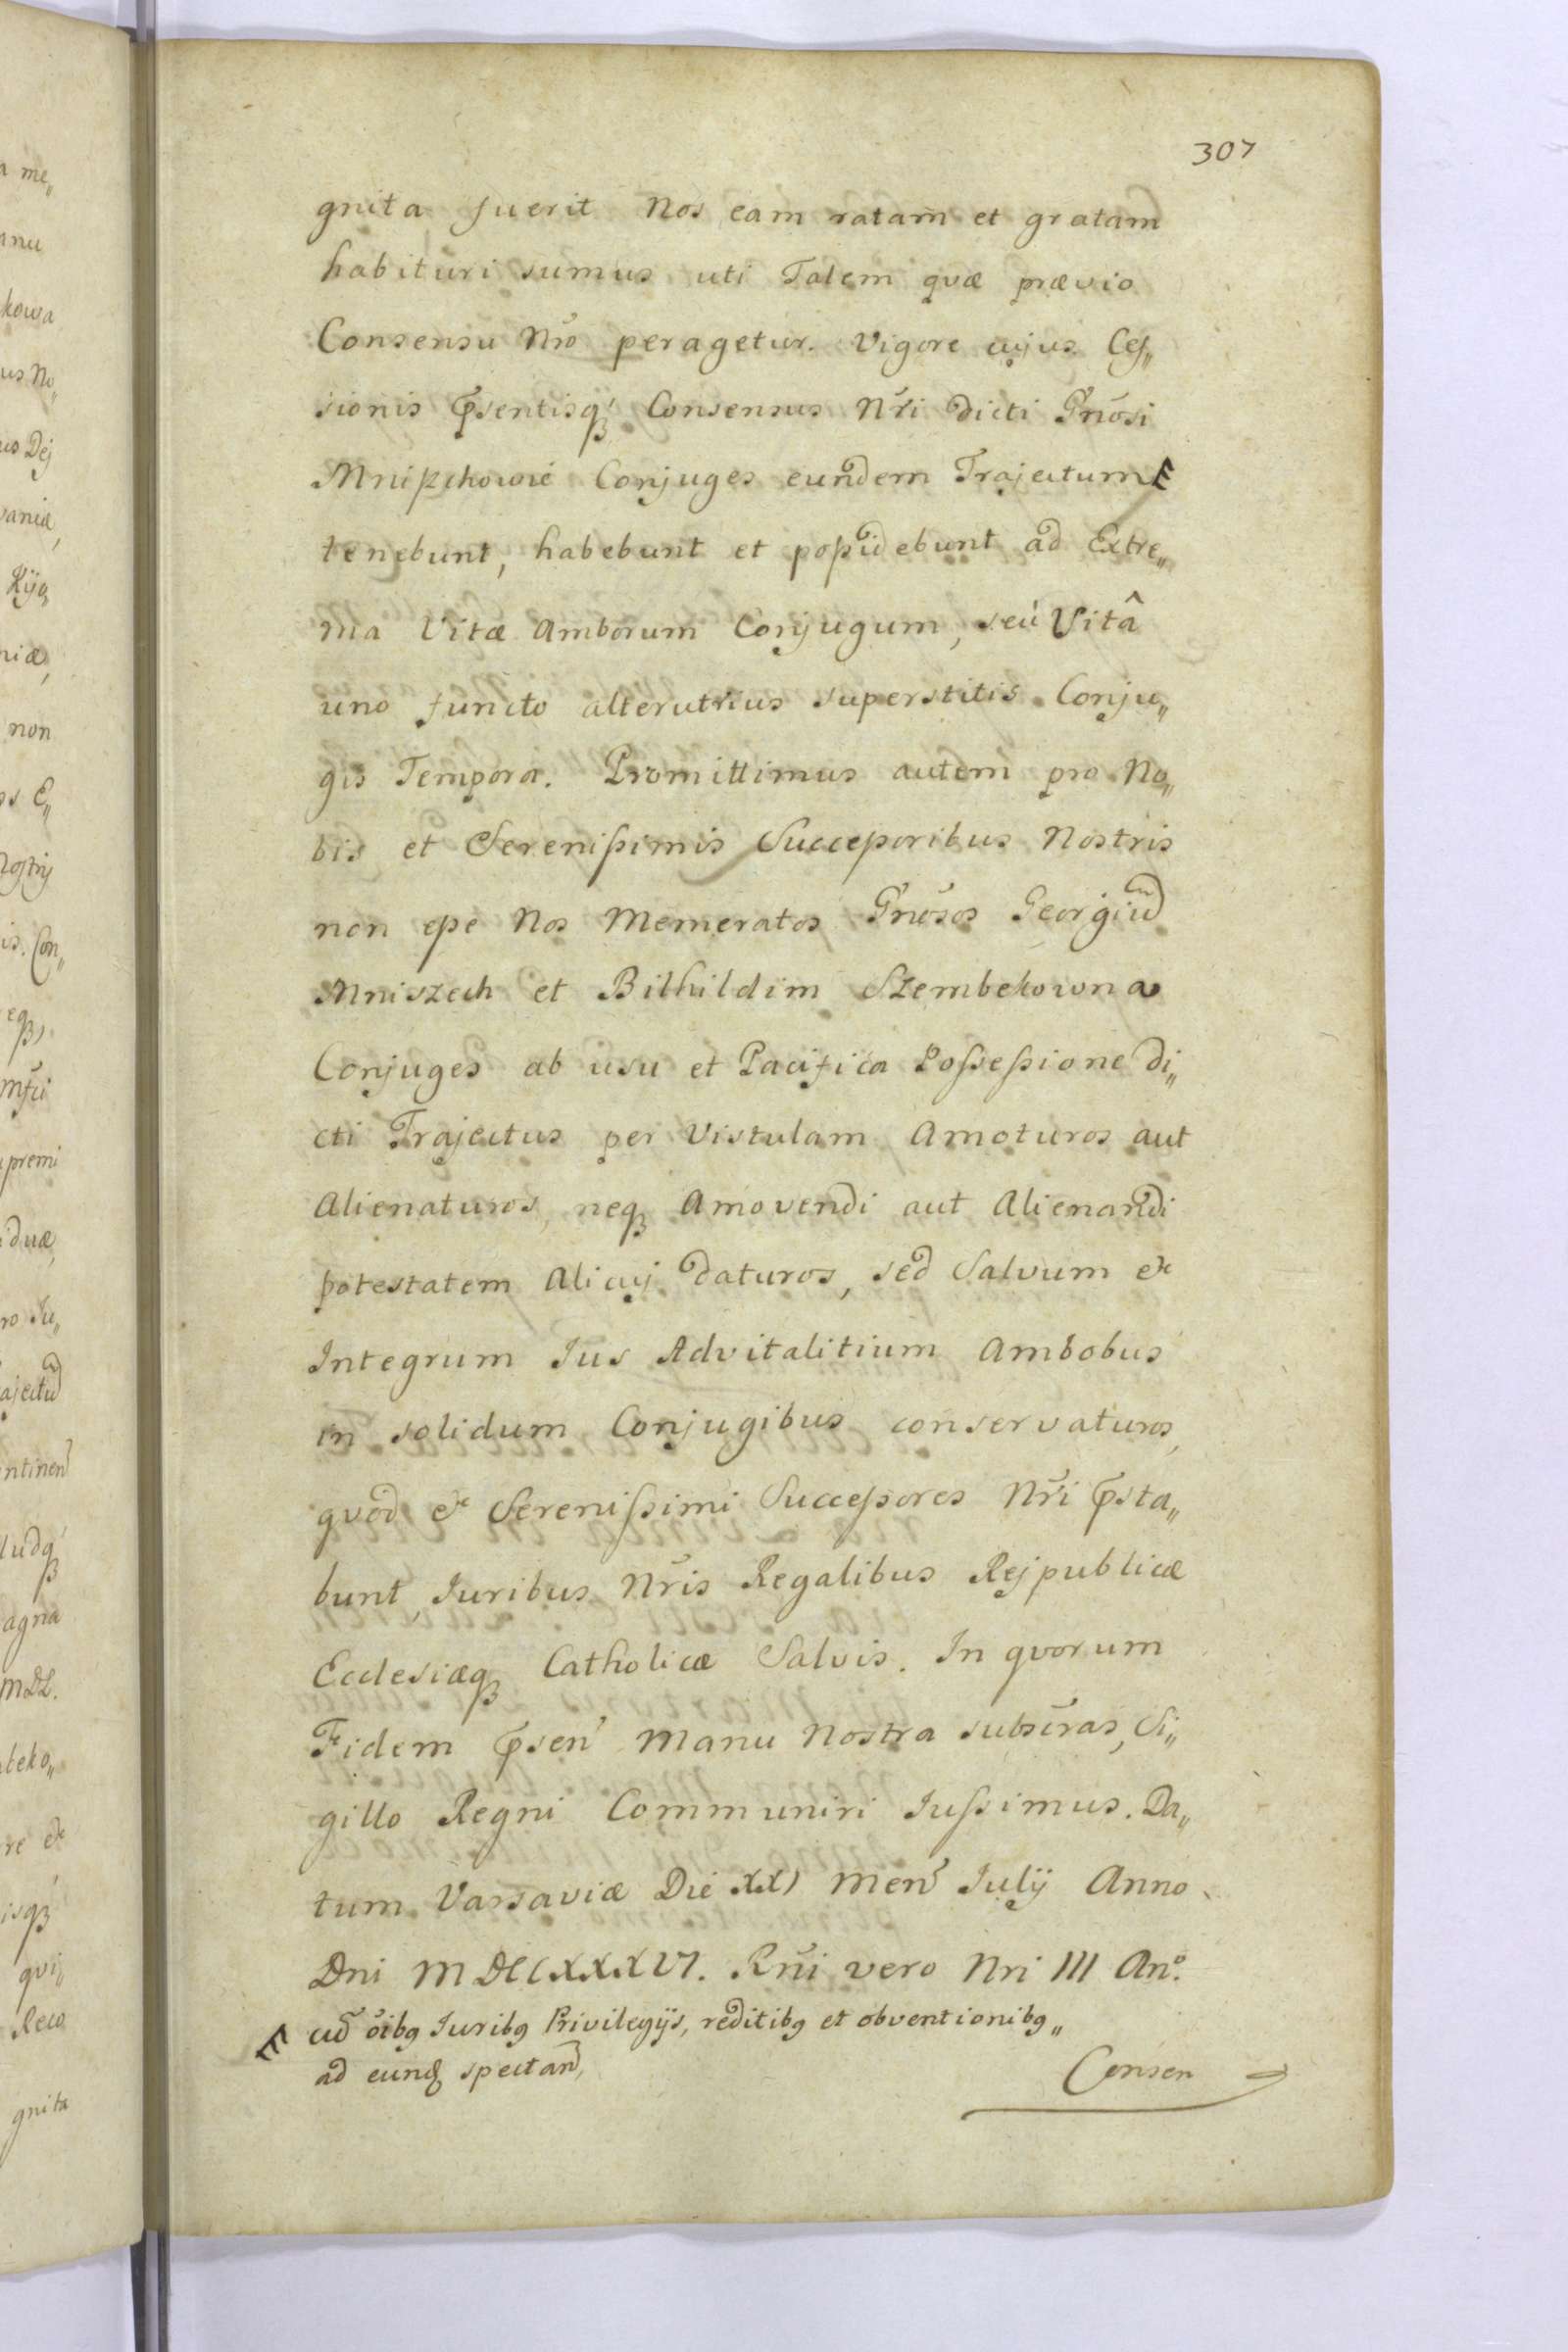 307
gnita fuerit Nos eam ratam et gratam
habituri sumus uti Talem quæ prævio
Consensu Nro peragetur. Vigore cujus Ces„
sionis p̃sentisq́ꝫ Consensus Nr̃i dicti Gn̄osi
Mniszkowie Conjuges eundem Trajectum E
tenebunt, habebunt et poßidebunt ad Extre„
ma Vitæ Amborum Conjugum, seu Vitâ
uno functo alterutrius superstitis Conju„
gis Tempora. Promittimus autem pro No„
bis et Serenißimis Succeßoribus Nostris
non eße Nos Memeratos Gn̄osos Georgiũ
Mniszech et Bilhildim Szembekowna
Conjuges ab usu et Pacifica Poßeßione di„
cti Trajectus per Vistulam Amoturos aut
Alienaturos, neqꝫ Amovendi aut Alienandi
potestatem Alicuj daturos, sed Salvum et
Integrum Ius Advitalitium Ambobus
in solidum Conjugibus conservaturos,
quod et Serenißimi Succeßores Nr̃i p̃sta„
bunt, Iuribus Nr̃is Regalibus Rejpublicæ
Ecclesiæqꝫ Catholicæ Salvis. In quorum
Fidem p̃sen̄ Manu Nostra subscr̃as, Si„
gillo Regni Communiri Iußimus. Da„
tum Varsaviæ Die XXI Men̄ Iulij Anno
Dni MDCCXXXVI. Rñi vero Nri III An̊.
E cũ oībꝫ Iuribꝫ Privilegijs, reditibꝫ et obventionibꝫ„
ad eundꝫ spectan̄,
Consen
a me„
anu
kowa
us No„
us Dej
vaniæ,
Kÿo„
niæ,
non
os E„
Nostrij
is. Con„
eqꝫ,
upremi
duæ
ro Iu„
ajectũ
ntinen̄
ludqꝫ
agna
MDL.
beko„
re et
isqꝫ
qui„
Reco
gnita